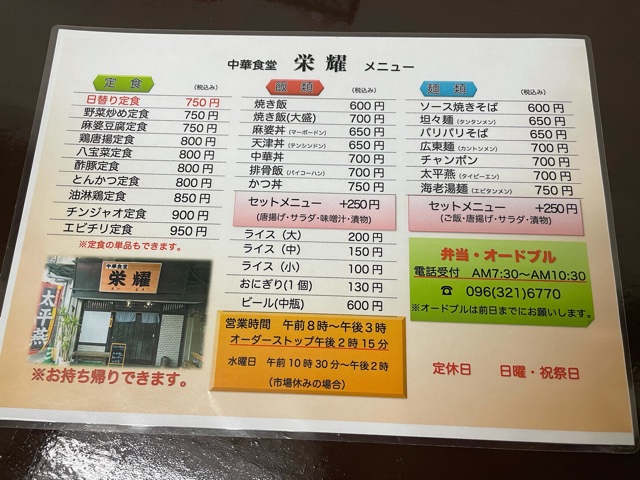 中華食堂 栄耀 メニュー
定食 (税込み)
日替り定食 750円
野菜炒め定食 750円
麻婆豆腐定食 750円
鶏唐揚定食 800円
八宝菜定食 800円
酢豚定食 800円
とんかつ定食 800円
油淋鶏定食 850円
チンジャオ定食 900円
エビチリ定食 950円
※定食の単品もできます。
中華食堂
栄耀
太平燕
※お持ち帰りできます。
飯類 (税込み)
焼き飯 600円
焼き飯(大盛) 700円
麻婆丼(マーボードン) 650円
天津丼(テンシンドン) 650円
中華丼 700円
排骨飯(パイコーハン) 700円
かつ丼 750円
セットメニュー +250円
(唐揚げ・サラダ・味噌汁・漬物)
ライス(大) 200円
ライス(中) 150円
ライス(小) 100円
おにぎり(1個) 130円
ビール(中瓶) 600円
営業時間 午前8時〜午後3時
オーダーストップ午後2時15分
水曜日 午前10時30分〜午後2時
(市場休みの場合)
麺類 (税込み)
ソース焼きそば 600円
坦々麺(タンタンメン) 650円
パリパリそば 650円
広東麺(カントンメン) 700円
チャンポン 700円
太平燕(タイピーエン) 700円
海老湯麺(エビタンメン) 750円
セットメニュー +250円
(ご飯・唐揚げ・サラダ・漬物)
弁当・オードブル
電話受付 AM7:30〜AM10:30
☎ 096(321)6770
※オードブルは前日までにお願いします。
定休日 日曜・祝祭日